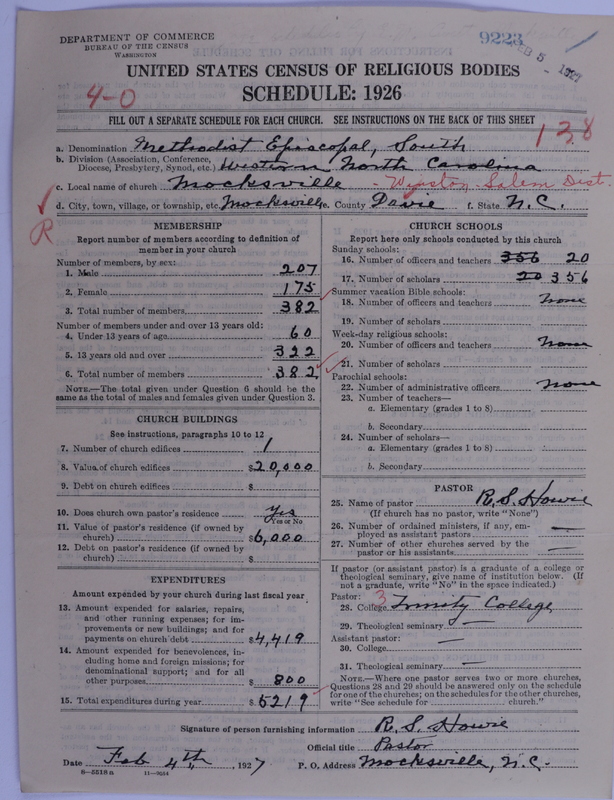 DEPARTMENT OF COMMERCE
BUREAU OF THE CENSUS
WASHINGTON
9223
FEB 5 - 1927
UNITED STATES CENSUS OF RELIGIOUS BODIES
SCHEDULE: 1926
4-0
FILL OUT A SEPARATE SCHEDULE FOR EACH CHURCH. SEE INSTRUCTIONS ON THE BACK OF THIS SHEET
138
a. Denomination Methodist Episcopal, South
b. Division (Association, Conference, Diocese, Presbytery, Synod, etc.) Western North Carolina
c. Local name of church Mocksville - Winston-Salem Dist.
d. City, town, village, or township, etc. Mocksville e. County Davie f. State N.C.
R
MEMBERSHIP
Report number of members according to definition of
member in your church
Number of members, by sex:
1. Male 207
2. Female 175
3. Total number of members 382
Number of members under and over 13 years old:
4. Under 13 years of age 60
5. 13 years old and over 322
6. Total number of members 382
NOTE.—The total given under Question 6 should be the
same as the total of males and females given under Question 3.
CHURCH BUILDINGS
See instructions, paragraphs 10 to 12
7. Number of church edifices 1
8. Value of church edifices $20,000
9. Debt on church edifices $
10. Does church own pastor's residence Yes
Yes or No
11. Value of pastor's residence (if owned by
church) $6,000
12. Debt on pastor's residence (if owned by
church) $
EXPENDITURES
Amount expended by your church during last fiscal year
13. Amount expended for salaries, repairs,
and other running expenses; for im-
provements or new buildings; and for
payments on church debt $4,419
14. Amount expended for benevolences, in-
cluding home and foreign missions; for
denominational support; and for all
other purposes $800
15. Total expenditures during year $5219
CHURCH SCHOOLS
Report here only schools conducted by this church
Sunday schools:
16. Number of officers and teachers 356 20
17. Number of scholars 20 356
Summer vacation Bible schools:
18. Number of officers and teachers none
19. Number of scholars
Week-day religious schools:
20. Number of officers and teachers none
21. Number of scholars
Parochial schools:
22. Number of administrative officers none
23. Number of teachers—
a. Elementary (grades 1 to 8)
b. Secondary
24. Number of scholars—
a. Elementary (grades 1 to 8)
b. Secondary
PASTOR
25. Name of pastor R. S. Howie
(If church has no pastor, write "None")
26. Number of ordained ministers, if any, em-
ployed as assistant pastors —
27. Number of other churches served by the
pastor or his assistants —
If pastor (or assistant pastor) is a graduate of a college or
theological seminary, give name of institution below. (If
not a graduate, write "No" in the space indicated.)
Pastor: 3
28. College Trinity College
29. Theological seminary —
Assistant pastor:
30. College —
31. Theological seminary —
NOTE.—Where one pastor serves two or more churches,
Questions 28 and 29 should be answered only on the schedule
for one of the churches; on the schedules for the other churches,
write "See schedule for church."
Signature of person furnishing information R. S. Howie
Official title Pastor
Date Feb 4th, 1927 P. O. Address Mocksville, N.C.
8—5518 a 11—9654